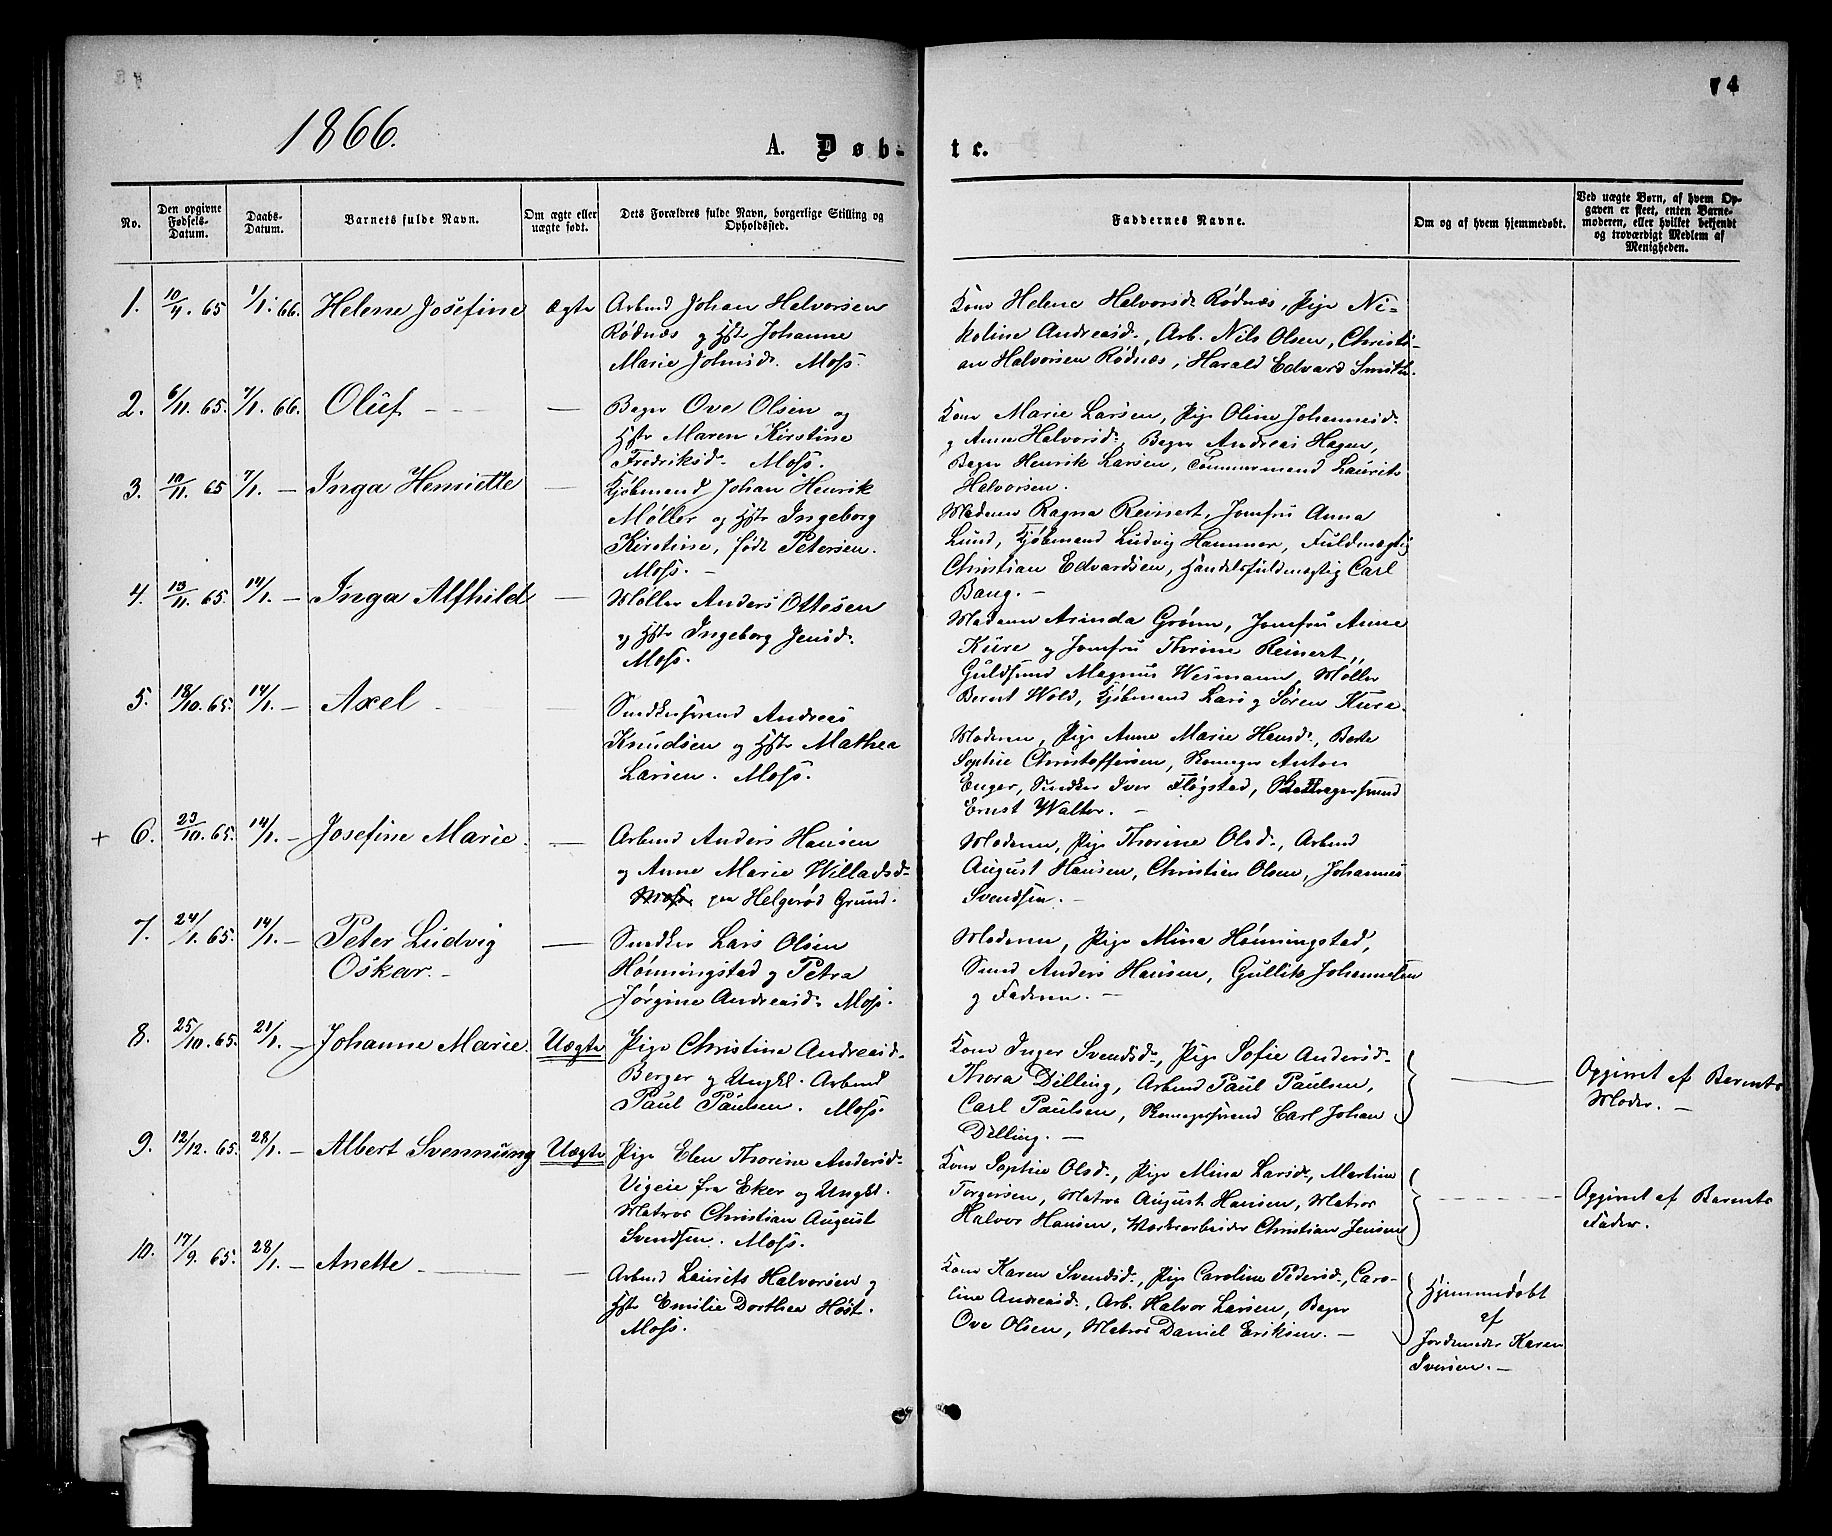 74
1866.
A. Døb-
te.
No.
Den opgivne Fødsels-Datum.
Daabs-Datum.
Barnets fulde Navn.
Om ægte eller uægte født.
Dets Forældres fulde Navn, borgerlige Stilling og Opholdssted.
Faddernes Navne.
Om og af hvem hjemmedøbt.
Ved uægte Børn, af hvem Opgaven er skeet, enten Barnemoderen, eller hvilket bekjendt og troværdigt Medlem af Menigheden.
1. 10/4. 65 1/1. 66. Helene Josefine ægte
Arbmd Johan Halvorsen
Rødnæs og Hstr Johanne
Marie Johnsd. Moss.
Kone Helene Halvorsd. Rødnæs, Pige Ni-
koline Andreasd., Arb. Nils Olsen, Christi-
an Halvorsen Rødnæs, Harald Edvard Smith.
2. 6/11. 65. 7/1. 66. Oluf — —
Bager Ove Olsen og
Hstr Maren Kirstine
Fredriksd. Moss.
Kone Marie Larsen, Pige Oline Johannesd.
og Anne Halvorsd., Bager Andreas Hagen,
Bager Henrik Larsen, Tømmermand Laurits
Halvorsen.
3. 10/11. 65 7/1. — Inga Henriette —
Kjøbmand Johan Henrik
Møller og Hstr Ingeborg
Kirstine, født Petersen.
Moss. —
Madame Ragna Reinert, Jomfru Anna
Lund, Kjøbmand Ludvig Hammer, Fuldmægtig
Christian Edvardsen, Handelsfuldmægtig Carl
Bang. —
4. 13/11. 65. 14/1. — Inga Alfhild —
Møller Anders Ottesen
og Hstr Ingeborg Jensd.
Moss.
Madame Arinda Grønn, Jomfru Anne
Kure og Jomfru Thrine Reinert,
Guldsmd Magnus Wesmann, Møller
Bernt Wold, Kjøbmand Lars og Søren Kure.
5. 18/10. 65. 14/1. — Axel — —
Snedkersvend Andreas
Knudsen og Hstr Mathea
Larsen. Moss.
Moderen, Pige Anne Marie Hansd., Berte
Sophie Christoffersen, Anton
Enger, Snedker Iver Fløgstad,
Ernst Walter. —
+ 6. 23/10. 65. 14/1. — Josefine Marie. —
Arbmd Anders Hansen
og Anne Marie Willadsd.
Moss. paa Helgerød Grund.
Moderen, Pige Thorine Olsd., Arbmd
August Hansen, Christian Olsen, Johannes
Svendsen. —
7. 24/1. 65. 14/1. — Peter Ludvig
Oskar. — —
Snedker Lars Olsen
Hønningstad og Petra
Jørgine Andreasd. Moss.
Moderen, Pige Mina Hønningstad,
Smed Anders Hansen, Gullik Johannesen
og Faderen. —
8. 25/10. 65. 21/1. — Johanne Marie. Uægte
Pige Christine Andreasd.
Berger og Ungkl. Arbmd
Paul Paulsen. Moss.
Kone Inger Svendsd., Pige Sofie Andersd.
Thora Dilling, Arbmd Paul Paulsen,
Carl Paulsen, Carl Johan
Dilling. —
Opgivet af Barnets
Moder. —
9. 12/12. 65. 28/1. — Albert Svennung Uægte
Pige Elen Thorine Andersd.
Vigeie fra Eker og Ungkl.
Matros Christian August
Svendsen. Moss.
Kone Sophie Olsd., Pige Mina Larsd., Martine
Torgersen, Matros August Hansen, Matros
Halvor Hansen, Værkarbeider Christian Jensen
Opgivet af Barnets
Fader.
10. 17/9. 65. 28/1. — Anette — —
Arbmd Laurits Halvorsen og
Hstr Emilie Dorthea Høst.
Moss.
Kone Karen Svendsd., Pige Caroline Pedersd., Caro-
line Andreasd., Arb. Halvor Larsen, Bager
Ove Olsen, Matros Daniel Eriksen. —
Hjemmedøbt
af
Jordemoder Karen
Iversen. —